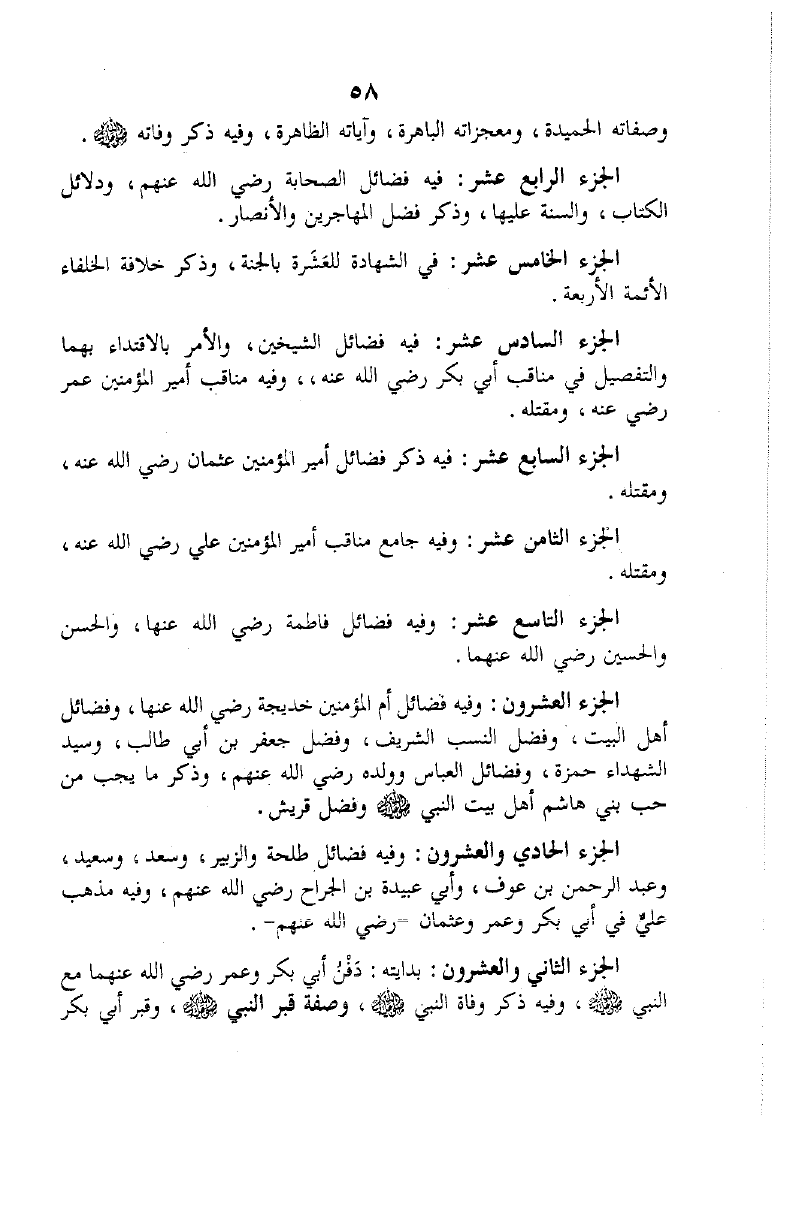 ٥٨
وصفاته الحميدة ، ومعجزاته الباهرة ، وآياته الظاهرة ، وفيه ذكر وفاته ﷺ .
الجزء الرابع عشر : فيه فضائل الصحابة رضي الله عنهم ، ودلائل
الكتاب ، والسنة عليها ، وذكر فضل المهاجرين والأنصار .
الجزء الخامس عشر : في الشهادة للعَشَرة بالجنة ، وذكر خلافة الخلفاء
الأئمة الأربعة .
الجزء السادس عشر : فيه فضائل الشيخين ، والأمر بالاقتداء بهما
والتفصيل في مناقب أبي بكر رضي الله عنه ،، وفيه مناقب أمير المؤمنين عمر
رضي عنه ، ومقتله .
الجزء السابع عشر : فيه ذكر فضائل أمير المؤمنين عثمان رضي الله عنه ،
ومقتله .
الجزء الثامن عشر : وفيه جامع مناقب أمير المؤمنين علي رضي الله عنه ،
ومقتله .
الجزء التاسع عشر : وفيه فضائل فاطمة رضي الله عنها ، والحسن
والحسين رضي الله عنهما .
الجزء العشرون : وفيه فضائل أم المؤمنين خديجة رضي الله عنها ، وفضائل
أهل البيت ، وفضل النسب الشريف ، وفضل جعفر بن أبي طالب ، وسيد
الشهداء حمزة ، وفضائل العباس وولده رضي الله عنهم ، وذكر ما يجب من
حب بني هاشم أهل بيت النبي ﷺ وفضل قريش .
الجزء الحادي والعشرون : وفيه فضائل طلحة والزبير ، وسعد ، وسعيد ،
وعبد الرحمن بن عوف ، وأبي عبيدة بن الجراح رضي الله عنهم ، وفيه مذهب
عليٌ في أبي بكر وعمر وعثمان =رضي الله عنهم- .
الجزء الثاني والعشرون : بدايته : دَفْنُ أبي بكر وعمر رضي الله عنهما مع
النبي ﷺ ، وفيه ذكر وفاة النبي ﷺ ، وصفة قبر النبي ﷺ ، وقبر أبي بكر